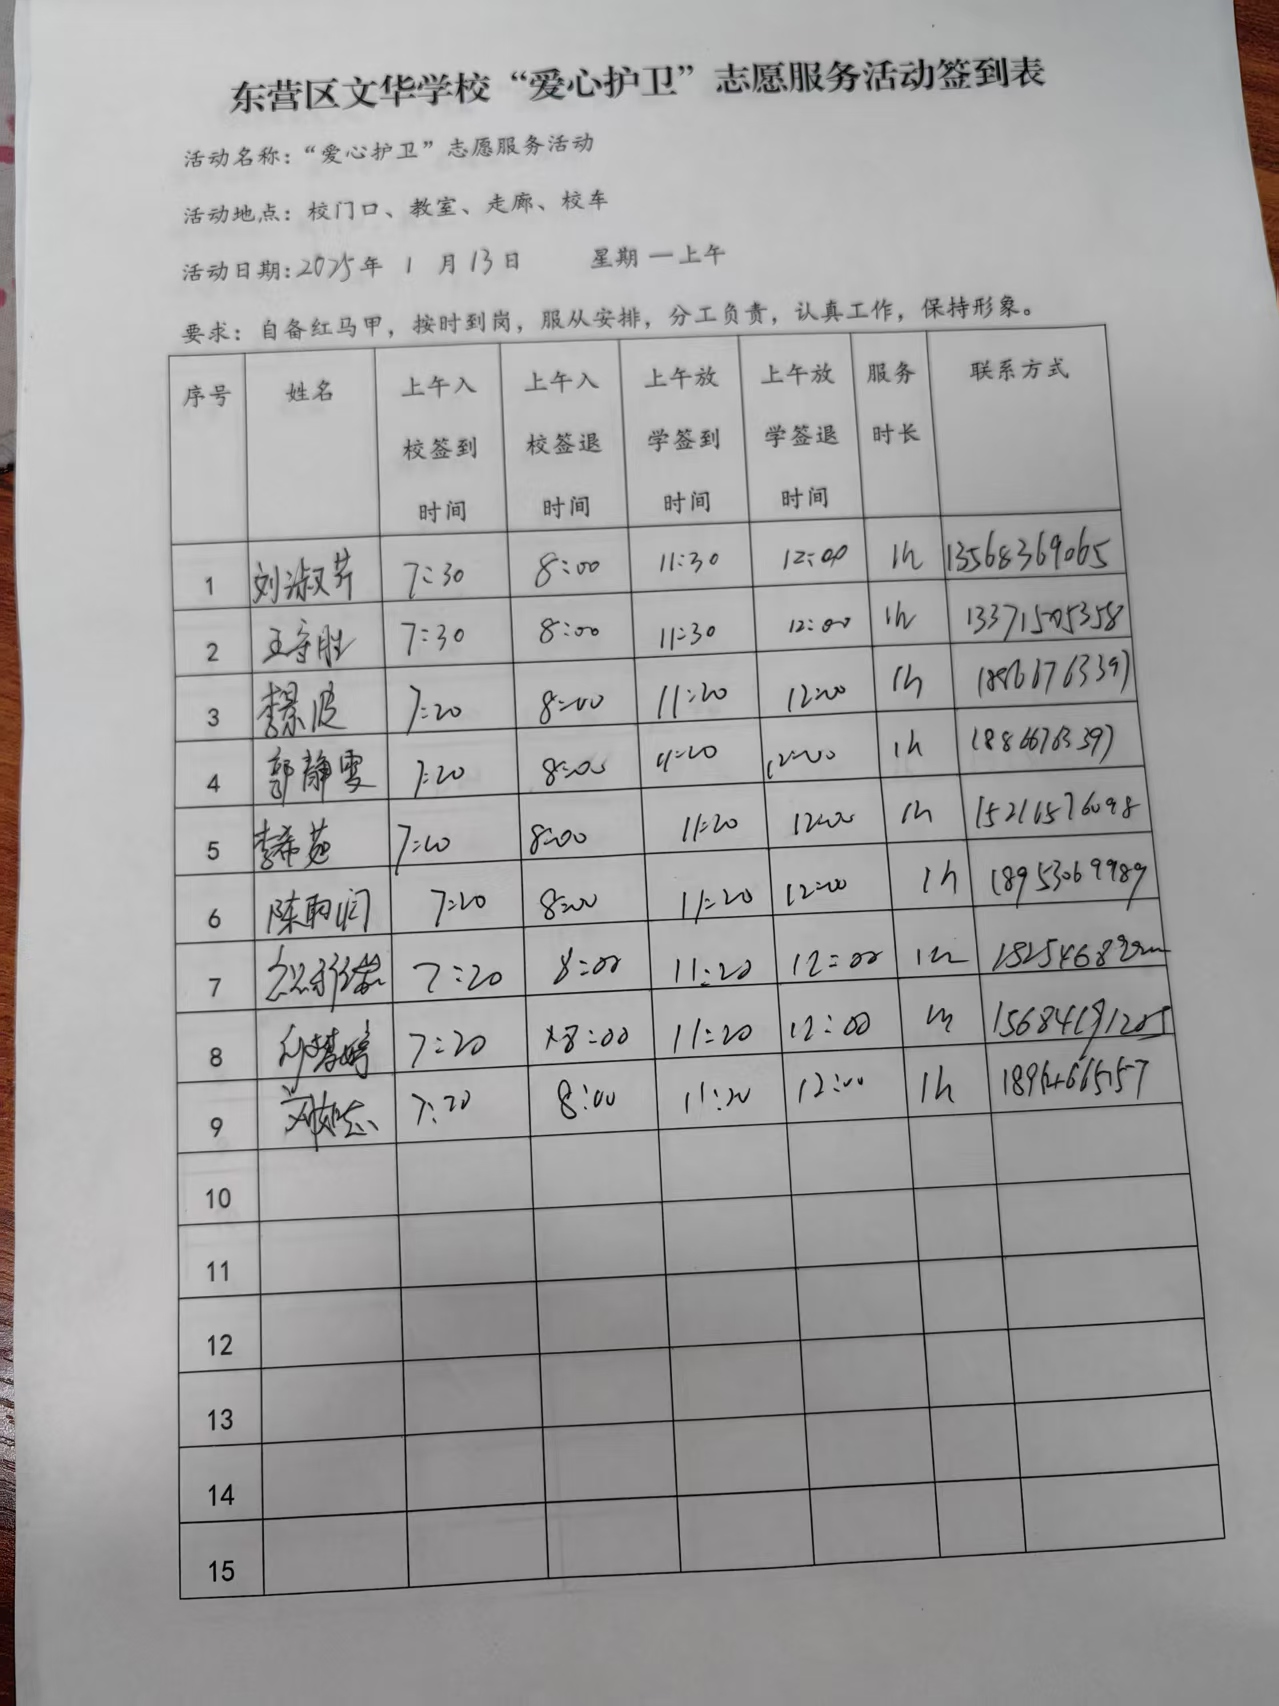 东营区文华学校“爱心护卫”志愿服务活动签到表
活动名称：“爱心护卫”志愿服务活动
活动地点：校门口、教室、走廊、校车
活动日期：2025年 1 月 13 日 星期 一 上午
要求：自备红马甲，按时到岗，服从安排，分工负责，认真工作，保持形象。
序号 姓名 上午入校签到时间 上午入校签退时间 上午放学签到时间 上午放学签退时间 服务时长 联系方式
1 刘淑芹 7:30 8:00 11:30 12:00 1h 13568369065
2 王守胜 7:30 8:00 11:30 12:00 1h 13371505358
3 李景波 7:20 8:00 11:20 12:00 1h
4 郭静雯 7:20 8:00 11:20 12:00 1h 18866763397
5 李希 7:20 8:00 11:20 12:00 1h 15216576098
6 陈 7:20 8:00 11:20 12:00 1h 18953069989
7 7:20 8:00 11:20 12:00 1h
8 7:20 8:00 11:20 12:00 1h
9 7:20 8:00 11:20 12:00 1h
10
11
12
13
14
15